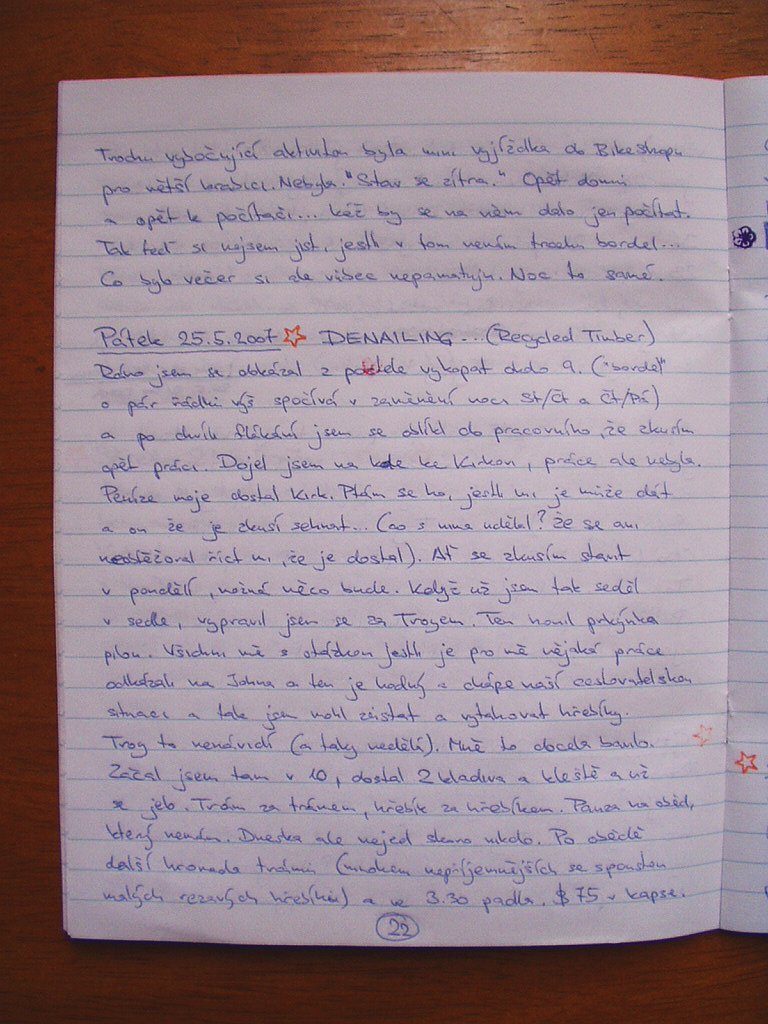 Trochu vybočující aktivitou byla mini vyjížďka do Bikeshopu
pro větší krabici. Nebyla. "Stav se zítra." Opět domů
a opět k počítači... kéž by se na něm dalo jen počítat.
Tak teď si nejsem jist, jestli v tom nemám trochu bordel...
Co bylo večer si ale vůbec nepamatuju. Noc to samé.
Pátek 25.5.2007 ☆ DENAILING... (Recycled Timber)
Ráno jsem se dokázal z postele vykopat okolo 9. ("bordel"
o pár řádků výš spočívá v zaměnění noci St/Čt a Čt/Pá)
a po chvíli flákání jsem se oblíkl do pracovního, že zkusím
opět práci. Dojel jsem na kole ke Kirkovi, práce ale nebyla.
Peníze moje dostal Kirk. Ptám se ho, jestli mi je může dát
a on že je zkusí sehnat... (co s nima udělal? Že se ani
neobtěžoval říct mi, že je dostal). Ať se zkusím stavit
v pondělí, možná něco bude. Když už jsem tak seděl
v sedle, vypravil jsem se za Trogem. Ten honil prkýnka
pilou. Všichni mě s otázkou jestli je pro mě nějaká práce
odkázali na Johna a ten je hodný a chápe naší cestovatelskou
situaci a tak jsem mohl zůstat a vytahovat hřebíky.
Trog to nenávidí (a taky nedělí). Mně to docela bavilo.
Začal jsem tam v 10, dostal 2 kladiva a kleště a už
se jelo. Trám za trámem, hřebík za hřebíkem. Pauza na oběd,
který nemám. Dneska ale nejed skoro nikdo. Po obědě
další hromada trámů (mnohem nepříjemnějších se spoustou
malých rezavých hřebíků) a ve 3.30 padla. $75 v kapse.
22